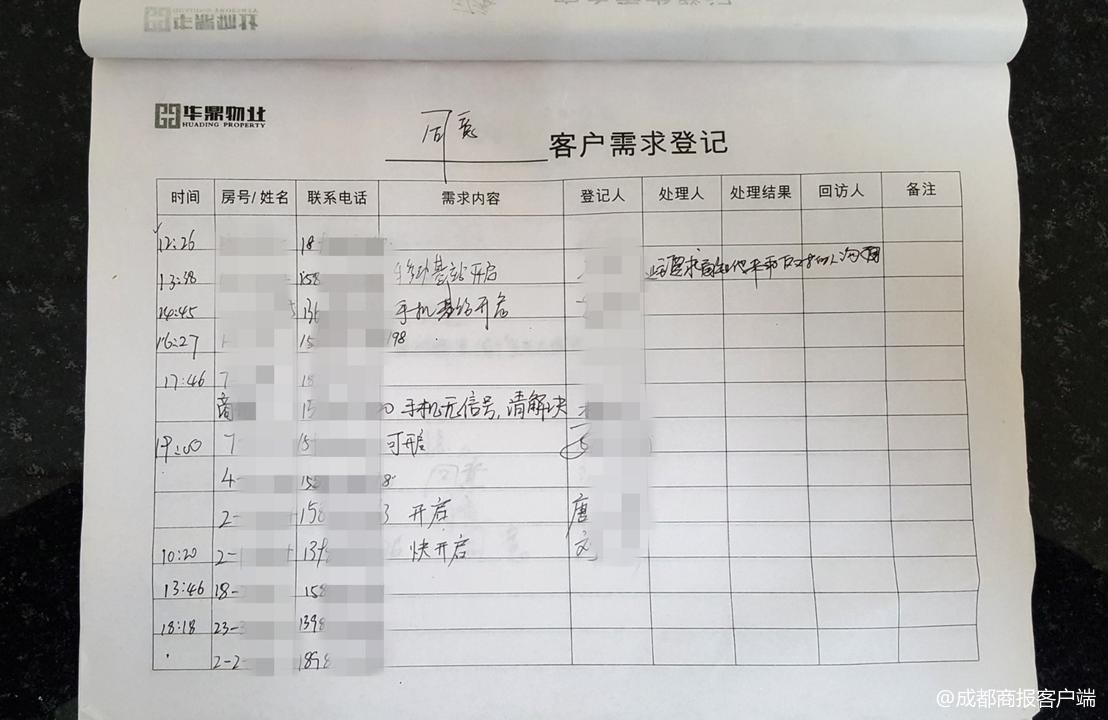 华鼎物业
HUADING PROPERTY
同意 客户需求登记
时间 房号/姓名 联系电话 需求内容 登记人 处理人 处理结果 回访人 备注
12:26 18
13:38 158 手机基站开启
14:45 136 手机基站开启
16:27 15 198
17:46 7- 18
商 15 手机无信号,请解决
19:00 7- 15 可开启
4- 158 8
2- 158 3 开启 唐
10:20 2- 139 快开启 文
13:46 18- 158
18:18 23- 1398
2-2- 189
@成都商报客户端